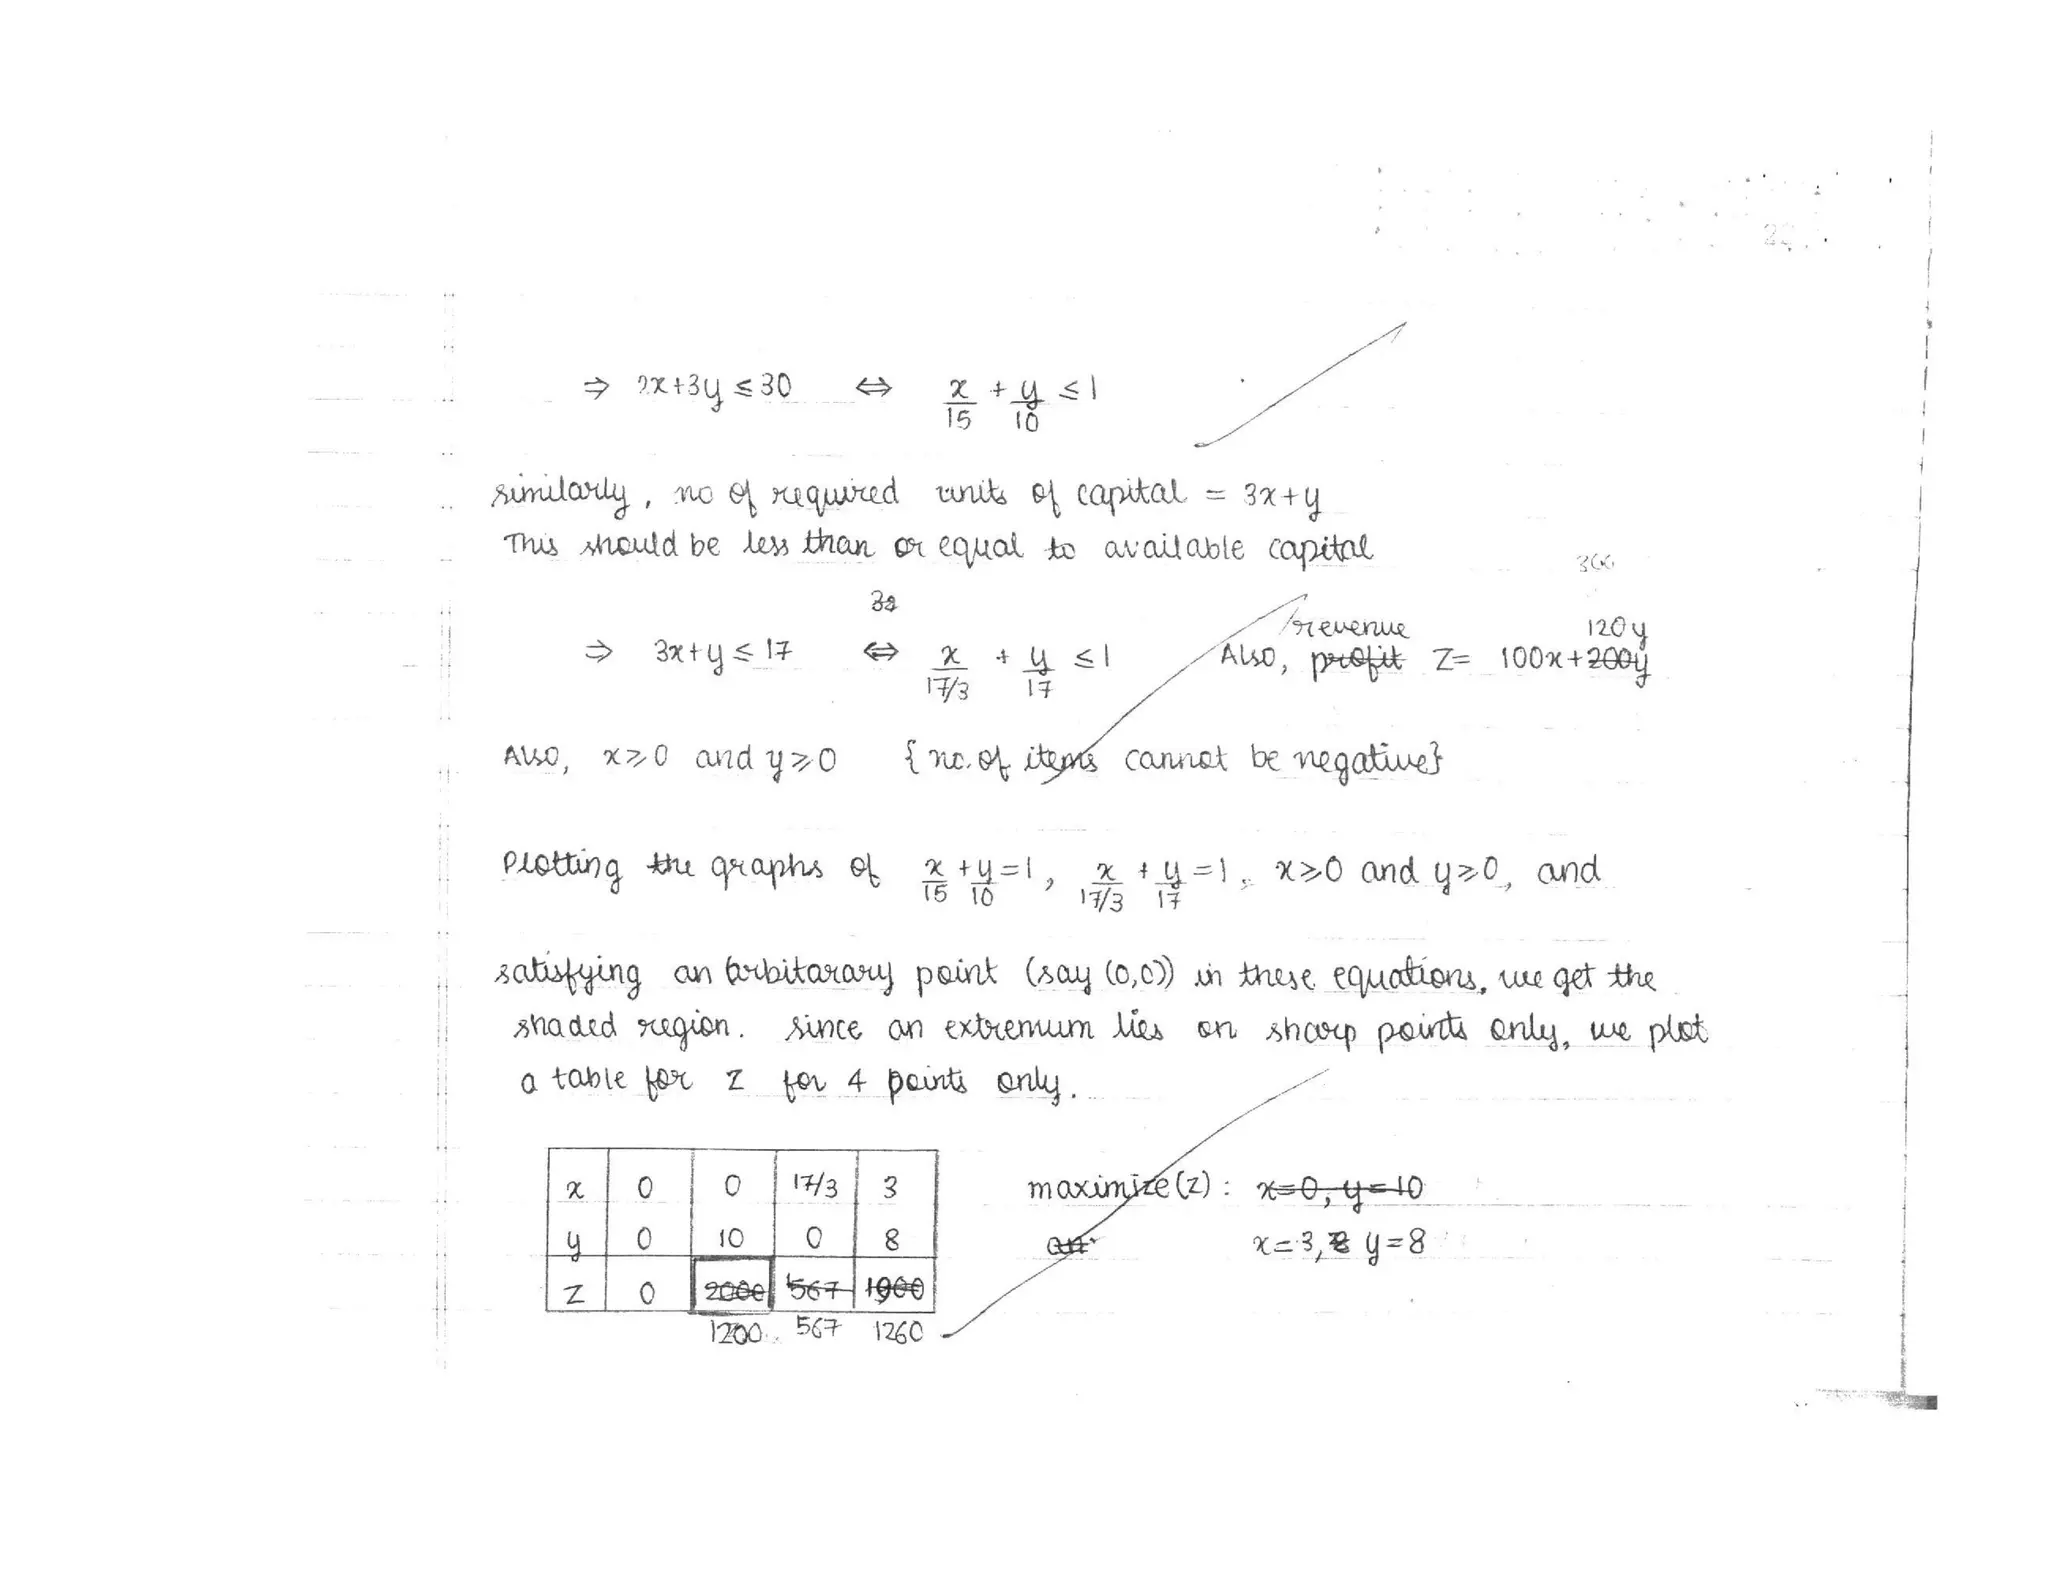 ⇒ 2x+3y ≤ 30 ⇔ x/15 + y/10 ≤ 1
similarly, no of required units of capital = 3x+y
This should be less than or equal to available capital
360
⇒ 3x+y ≤ 17 ⇔ x/17/3 + y/17 ≤ 1 Also, profit revenue Z = 100x + 200y 120y
Also, x ≥ 0 and y ≥ 0 { no. of items cannot be negative}
Plotting the graphs of x/15 + y/10 = 1, x/17/3 + y/17 = 1, x ≥ 0 and y ≥ 0, and
satisfying an arbitarary point (say (0,0)) in these equations, we get the
shaded region. Since an extremum lies on sharp points only, we plot
a table for z for 4 points only.
x 0 0 17/3 3 maximize(z): x=0, y=10
y 0 10 0 8 x=3, y=8
z 0 2000 567 1900
1200 567 1260